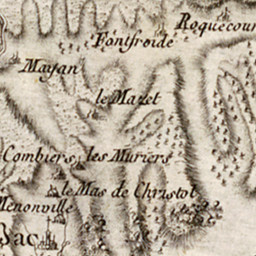 Roquecour
Fontfroide
Mayan
le Mazet
Combiers
les Muriers
le Mas de Christot
Menonville